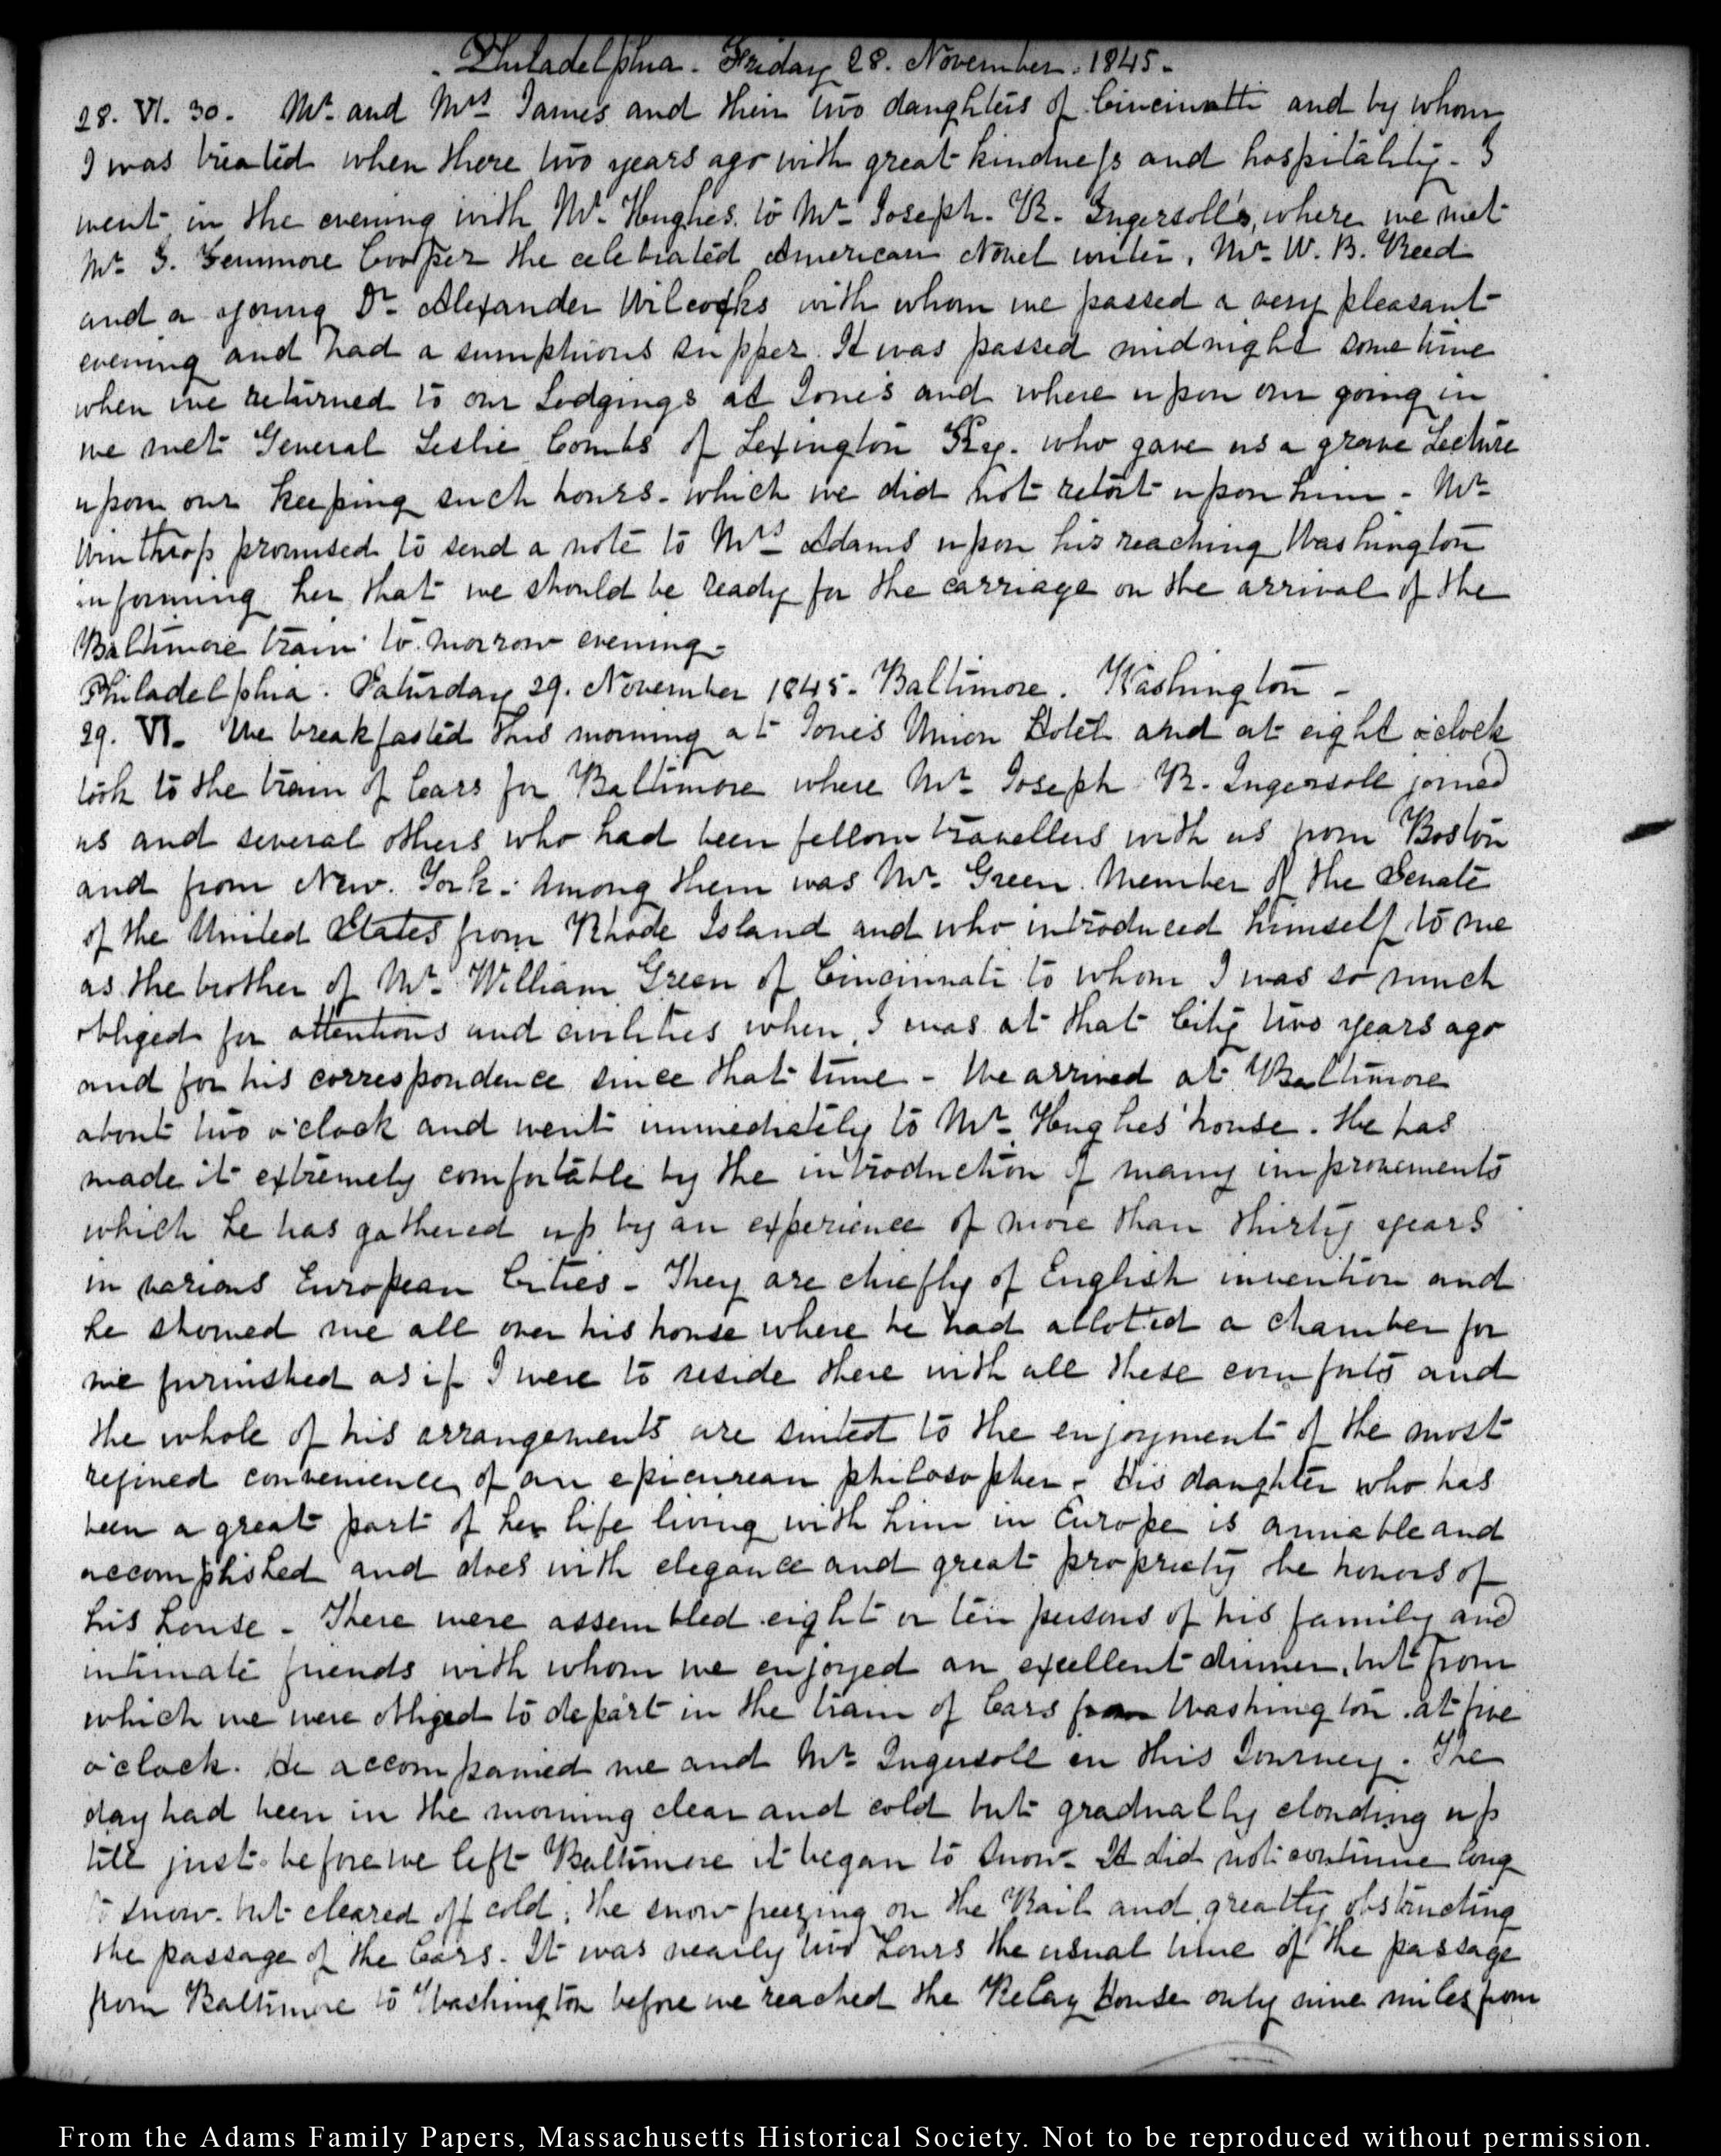 Philadelphia. Friday 28. November. 1845.
28. VI. 30. Mr. and Mrs. James and their two daughters of Cincinnatti and by whom
I was treated when there two years ago with great kindness and hospitality. I
went in the evening with Mr. Hughes to Mr. Joseph. R. Ingersoll's, where we met
Mr. J. Fennmore Cooper the celebrated American Novel writer, Mr. W. B. Reed
and a young Dr. Alexander Wilcocks with whom we passed a very pleasant
evening and had a sumptuous supper. It was passed midnight some time
when we returned to our Lodgings at Jones and where upon our going in
we met General Leslie Combs of Lexington Ky. who gave us a grave Lecture
upon our keeping such hours. which we did not retort upon him. Mr.
Winthrop promised to send a note to Mrs. Adams upon his reaching Washington
informing her that we should be ready for the carriage on the arrival of the
Baltimore train to morrow evening.
Philadelphia. Saturday 29. November 1845. Baltimore. Washington.
29. VI. We breakfasted this morning at Jones Union Hotel and at eight o'clock
took to the train of Cars for Baltimore where Mr. Joseph R. Ingersoll joined
us and several others who had been fellow travellers with us from Boston
and from New. York. Among them was Mr. Green. Member of the Senate
of the United States from Rhode Island and who introduced himself to me
as the brother of Mr. William Green of Cincinnati to whom I was so much
obliged for attentions and civilities when I was at that City two years ago
and for his correspondence since that time. We arrived at Baltimore
about two o'clock and went immediately to Mr. Hughes' house. He has
made it extremely comfortable by the introduction of many improvements
which he has gathered up by an experience of more than thirty years
in various European Cities. They are chiefly of English invention and
he showed me all over his house where he had alloted a chamber for
me furnished as if I were to reside there with all these comforts and
the whole of his arrangements are suited to the enjoyment of the most
refined convenience of an epicurean philosopher. His daughter who has
been a great part of her life living with him in Europe is amiable and
accomplished and does with elegance and great propriety the honors of
his house. There were assembled eight or ten persons of his family and
intimate friends with whom we enjoyed an excellent dinner, but from
which we were obliged to depart in the train of Cars from Washington at five
o'clock. He accompanied me and Mr. Ingersoll in this Journey. The
day had been in the morning clear and cold but gradually clouding up
till just before we left Baltimore it began to snow. It did not continue long
to snow. but cleared off cold, the snow freezing on the Rail and greatly obstructing
the passage of the Cars. It was nearly two hours the usual time of the passage
from Baltimore to Washington before we reached the Relay House only nine miles from
From the Adams Family Papers, Massachusetts Historical Society. Not to be reproduced without permission.